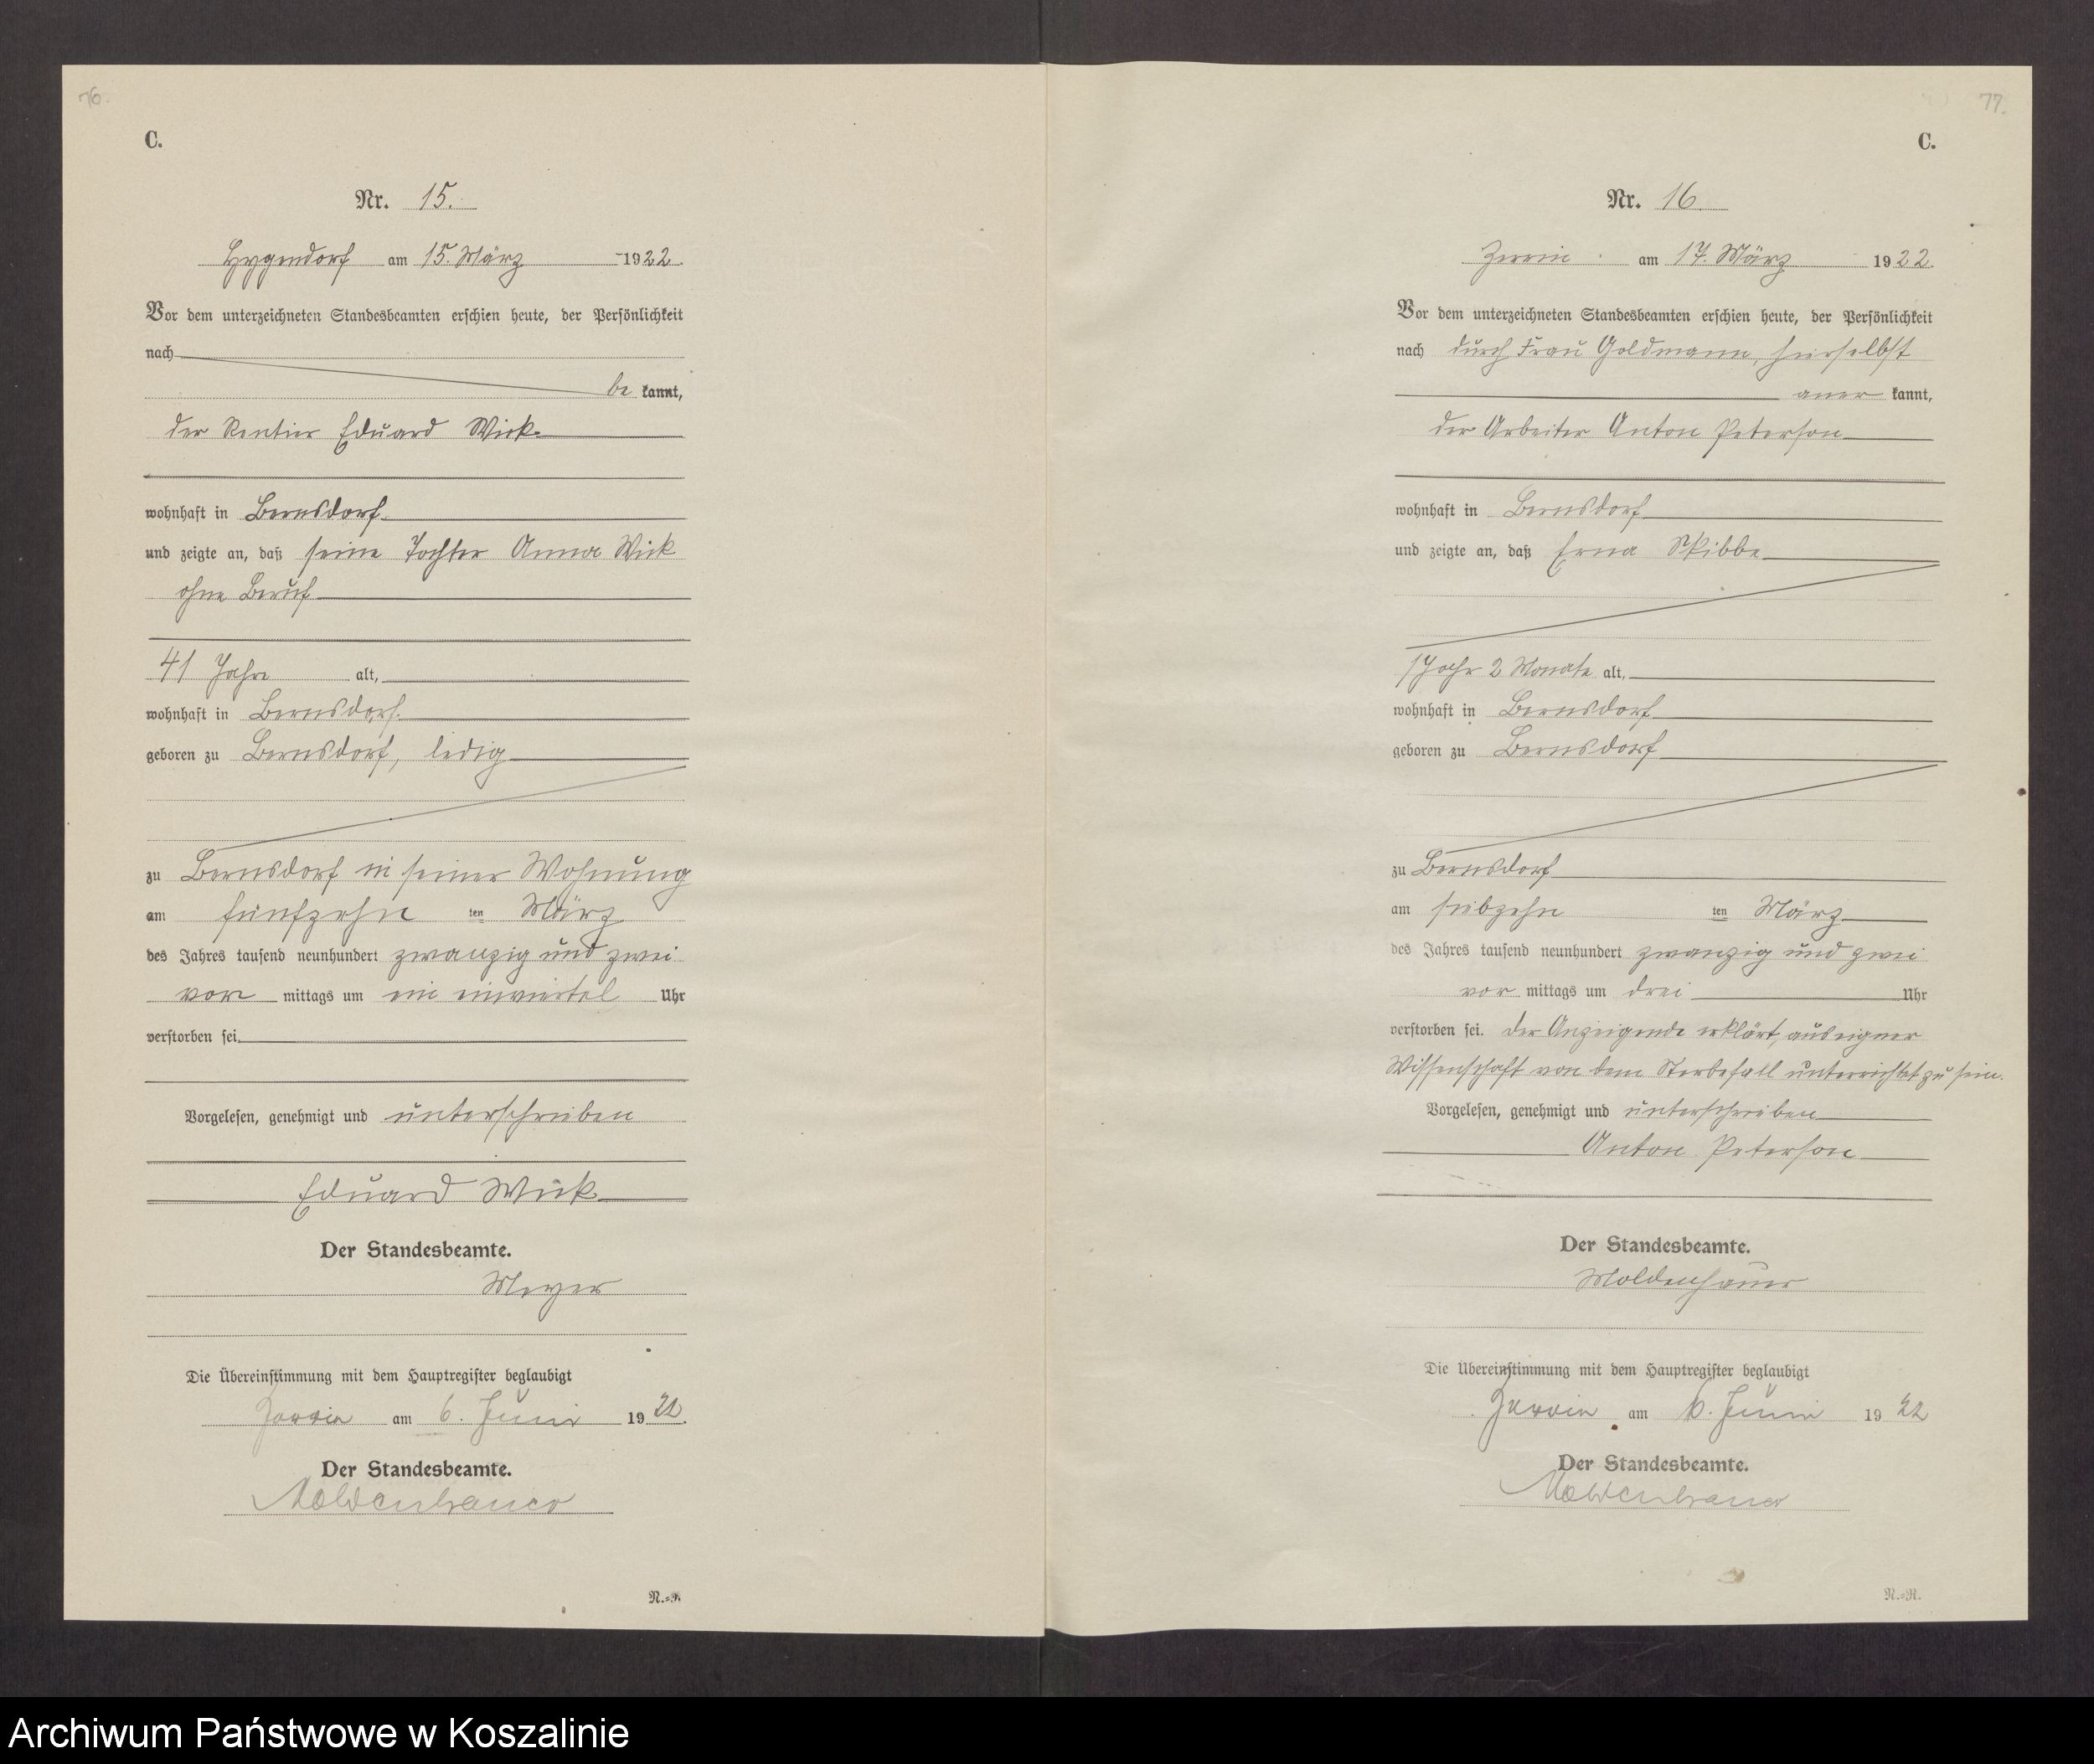 76.
C.
Nr. 15.
Hygendorf am 15. März 1922.
Vor dem unterzeichneten Standesbeamten erschien heute, der Persönlichkeit
nach
be kannt,
der Rentier Eduard Wick
wohnhaft in Bernsdorf
und zeigte an, daß seine Tochter Anna Wick
ohne Beruf
41 Jahre alt,
wohnhaft in Bernsdorf.
geboren zu Bernsdorf, ledig
zu Bernsdorf in seiner Wohnung
am fünfzehn ten März
des Jahres tausend neunhundert zwanzig und zwei
vor mittags um ein einviertel Uhr
verstorben sei.
Vorgelesen, genehmigt und unterschrieben
Eduard Wick
Der Standesbeamte.
Meyer
Die Übereinstimmung mit dem Hauptregister beglaubigt
Zerrin am 6. Juni 1922.
Der Standesbeamte.
Moldenhauer
77.
C.
Nr. 16
Zerrin am 17. März 1922
Vor dem unterzeichneten Standesbeamten erschien heute, der Persönlichkeit
nach durch Frau Goldmann, hierselbst
aner kannt,
der Arbeiter Anton Peterson
wohnhaft in Bernsdorf
und zeigte an, daß Erna Skibbe
1 Jahr 2 Monate alt,
wohnhaft in Bernsdorf
geboren zu Bernsdorf
zu Bernsdorf
am siebzehn ten März
des Jahres tausend neunhundert zwanzig und zwei
vor mittags um drei Uhr
verstorben sei. Der Anzeigende erklärt, aus eigner
Wissenschaft von dem Sterbefall unterrichtet zu sein.
Vorgelesen, genehmigt und unterschrieben
Anton Peterson
Der Standesbeamte.
Moldenhauer
Die Übereinstimmung mit dem Hauptregister beglaubigt
Zerrin am 6. Juni 1922
Der Standesbeamte.
Moldenhauer
R.=R.
Archiwum Państwowe w Koszalinie